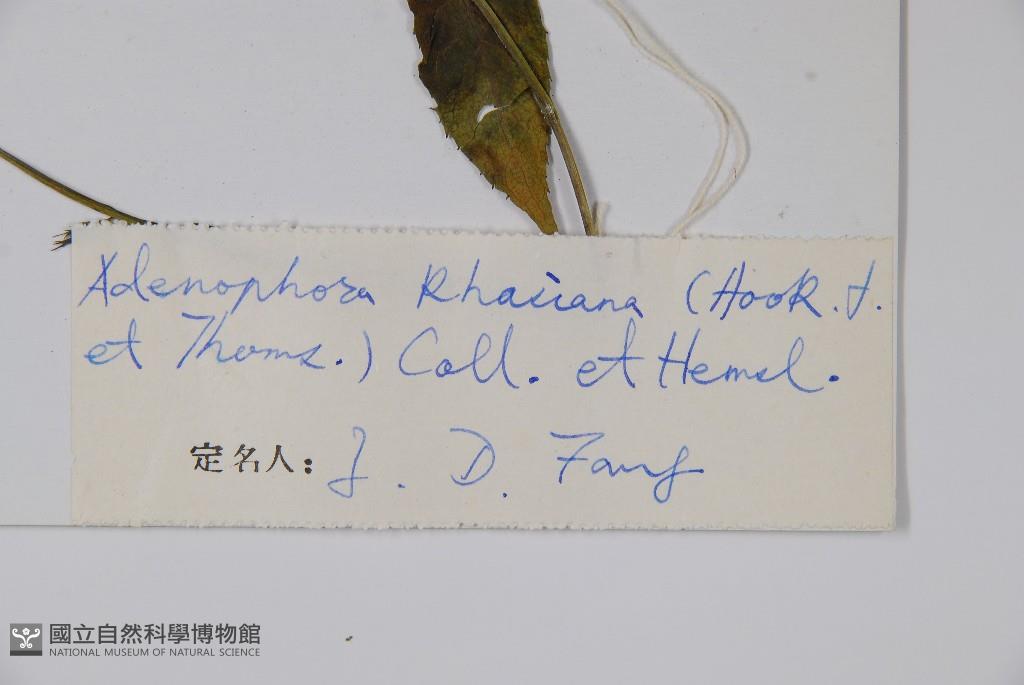 Adenophora Khasiana (Hook. f.
et Thoms.) Coll. et Hemsl.
定名人: J. D. Fang
國立自然科學博物館
NATIONAL MUSEUM OF NATURAL SCIENCE